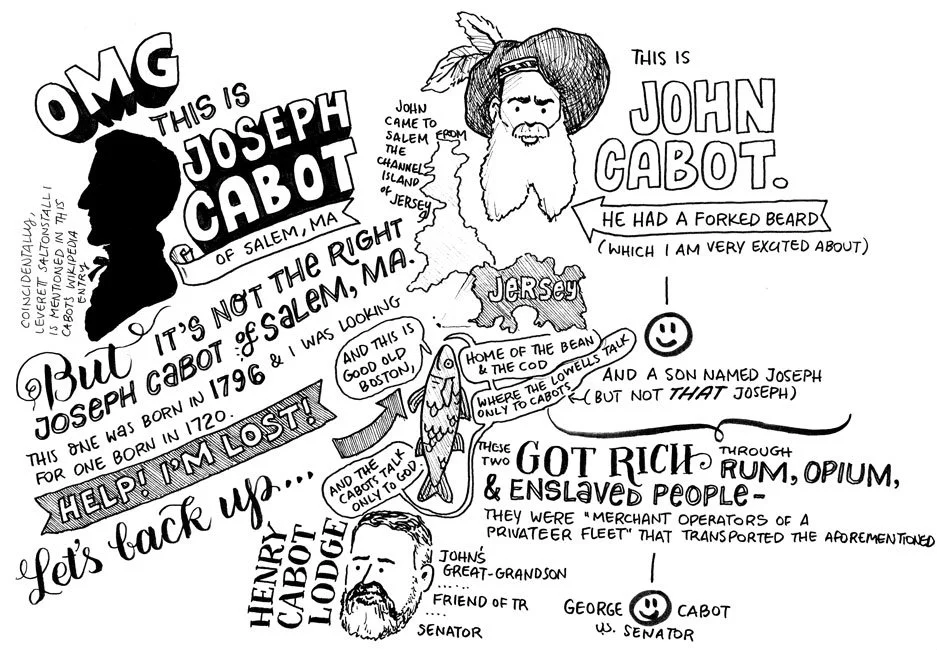 OMG
THIS IS
JOSEPH
CABOT
OF SALEM, MA
COINCIDENTALLY,
LEVERETT SALTONSTALL I
IS MENTIONED IN THIS
CABOTS WIKIPEDIA
ENTRY
But IT'S NOT THE RIGHT
JOSEPH CABOT of SALEM, MA.
THIS ONE WAS BORN IN 1796 & I WAS LOOKING
FOR ONE BORN IN 1720.
HELP! I'M LOST!
Let's back up....
JOHN
CAME TO
SALEM FROM
THE
CHANNEL
ISLAND
of JERSEY
THIS IS
JOHN
CABOT.
HE HAD A FORKED BEARD
(WHICH I AM VERY EXCITED ABOUT)
JERSEY
AND A SON NAMED JOSEPH
(BUT NOT THAT JOSEPH)
AND THIS IS
GOOD OLD
BOSTON,
HOME OF THE BEAN
& THE COD
WHERE THE LOWELLS TALK
ONLY TO CABOTS
AND THE
CABOTS TALK
ONLY TO GOD
THESE
TWO
GOT RICH
THROUGH
RUM, OPIUM,
& ENSLAVED PEOPLE-
THEY WERE "MERCHANT OPERATORS OF A
PRIVATEER FLEET" THAT TRANSPORTED THE AFOREMENTIONED
HENRY
CABOT
LODGE
JOHN'S
GREAT-GRANDSON
......
FRIEND OF TR
....
SENATOR
GEORGE CABOT
U.S. SENATOR